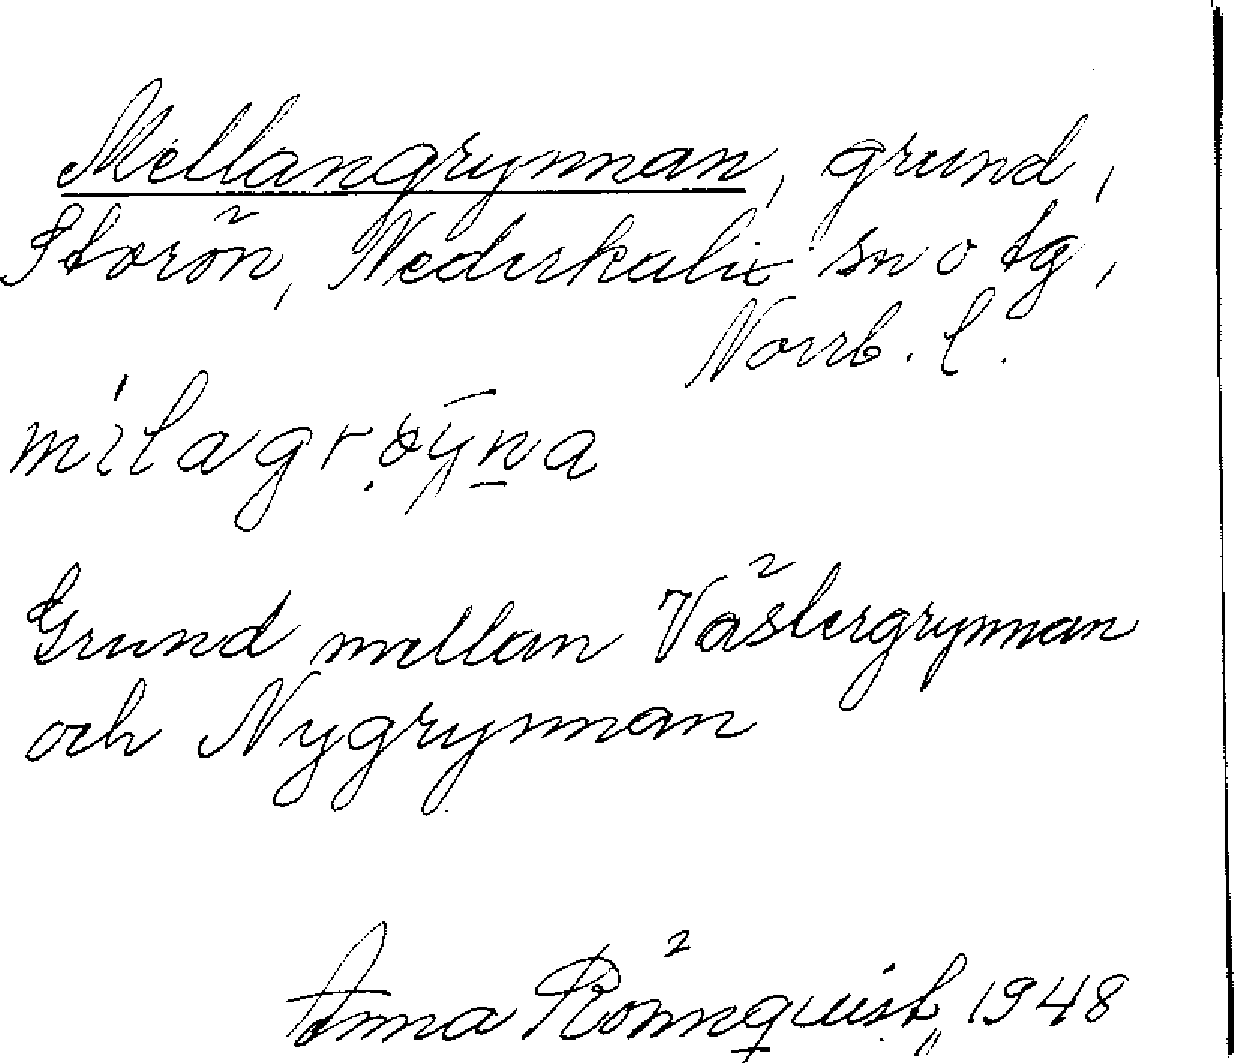 Mellangrynnan, grund,
Storön, Nederkalix sn o tg,
Norrb. l.
Grund mellan Västergrynnan
och Nygrynnan
Anna Rönnquist, 1948